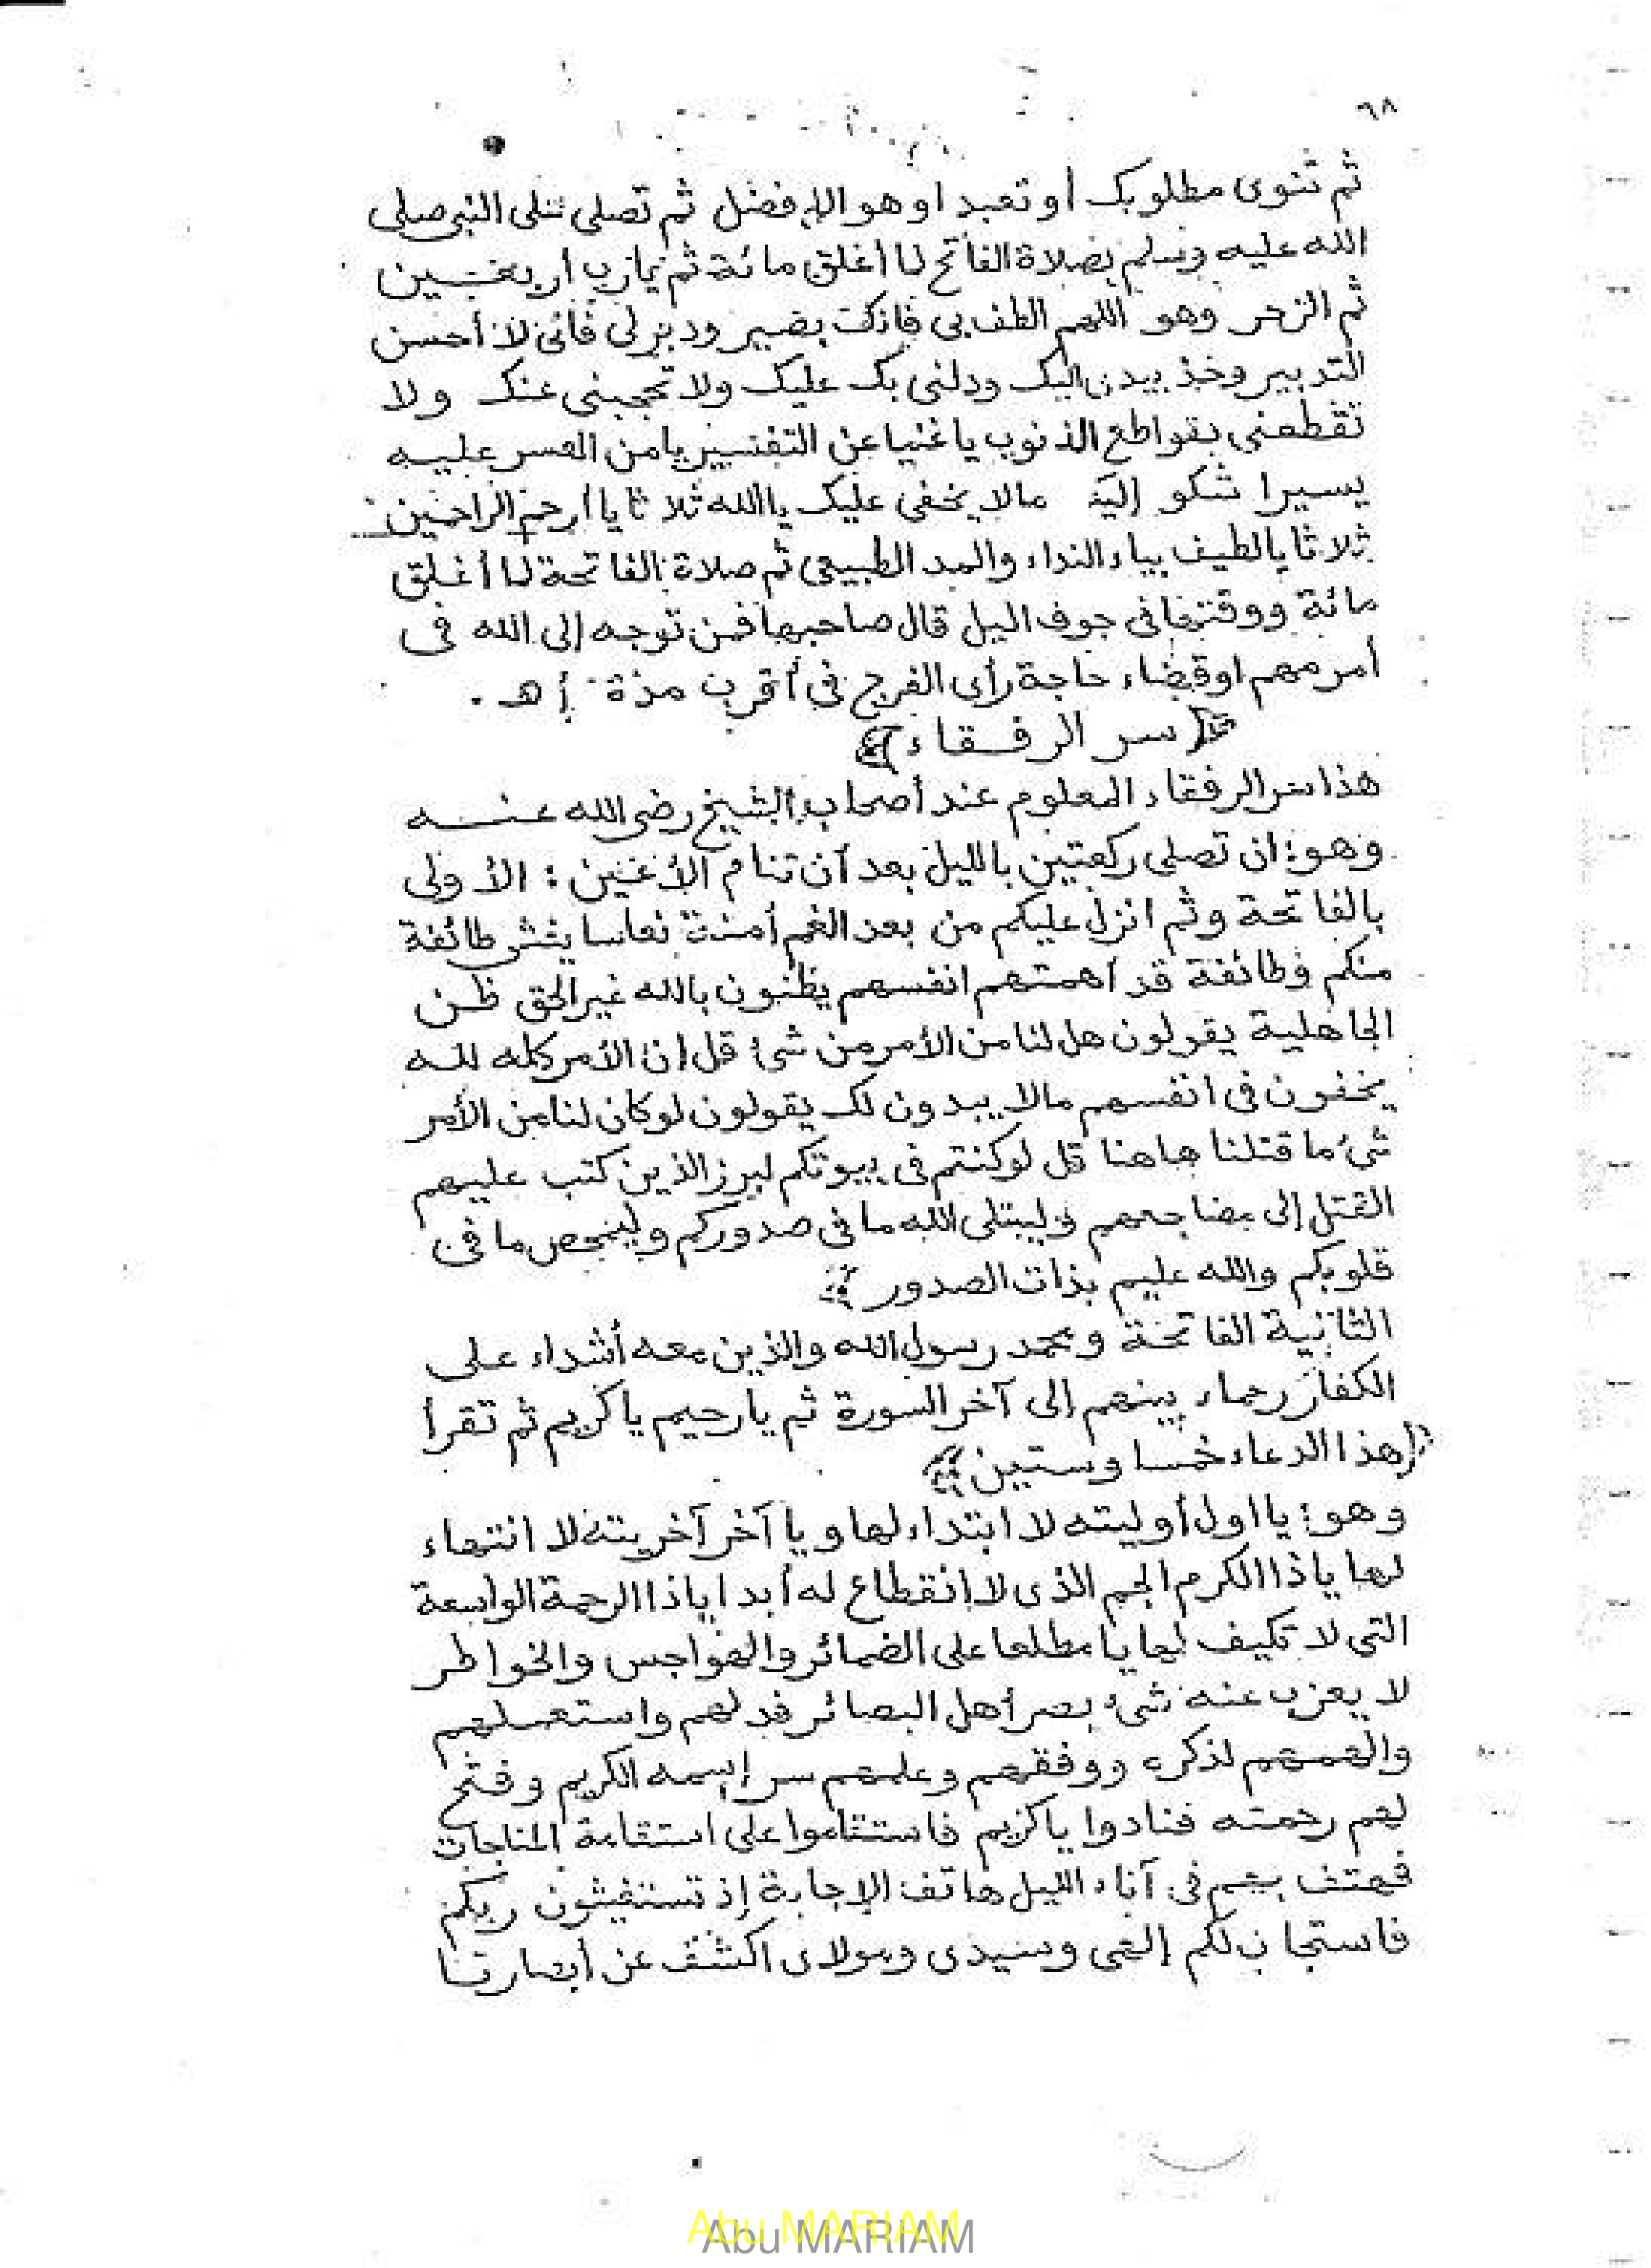 ٦٨
ثم تنوى مطلوبك أو تعبدا وهو الإفضل ثم تصلى على النبى صلى
الله عليه وسلم بصلاة الفاتح لما أغلق مائة ثم يارب أربعين
ثم الزجر وهو اللهم الطف بى فإنك بصير ودبرلى فانى لا أحسن
التدبير وخذ بيدى اليك ودلنى بك عليك ولا تحجبنى عنك ولا
تقطعنى بقواطع الذنوب يا غنيا عن التفسير يا من العسر عليه
يسيرا شكو إليك مالا يخفى عليك يا الله ثلاثا يا أرحم الراحمين
ثلاثا يالطيف بياء النداء والمد الطبيعى ثم صلاة الفاتحة لما أغلق
مائة ووقتها فى جوف اليل قال صاحبها فمن توجه إلى الله فى
أمر مهم او قضاء حاجة رأى الفرج فى أقرب مدة أ هـ .
﴿ سر الرفقاء ﴾
هذا سر الرفقاء المعلوم عند أصحاب الشيخ رضى الله عنه
وهو: ان تصلى ركعتين بالليل بعد أن تنام الأعين : الأولى
بالفاتحة وثم انزل عليكم من بعد الغم أمنة نعاسا يغشى طائفة
منكم وطائفة قد أهمتهم انفسهم يظنون بالله غير الحق ظن
الجاهلية يقولون هل لنا من الأمر من شىء قل إن الأمر كله لله
يخفون فى انفسهم مالا يبدون لك يقولون لو كان لنا من الأمر
شىء ما قتلنا هاهنا قل لو كنتم فى بيوتكم لبرز الذين كتب عليهم
القتل إلى مضاجعهم وليبتلى الله ما فى صدوركم وليمحص ما فى
قلوبكم والله عليم بذات الصدور ﴾
الثانية الفاتحة ومحمد رسول الله والذين معه أشداء على
الكفار رحماء بينهم إلى آخر السورة ثم يا رحيم يا كريم ثم تقرأ
﴿ هذا الدعاء خمسا وستين ﴾
وهو: يا اول أوليته لا ابتداء لها و يا آخر آخريته لا انتهاء
لها يا ذا الكرم الجم الذى لا إنقطاع له أبدا ياذا الرحمة الواسعة
التى لا تكيف لها يا مطلعا على الضمائر والهواجس والخواطر
لا يعزب عنه شىء بصر أهل البصائر فدلهم واستعملهم
والهمهم لذكره ووفقهم وعلمهم سر إسمه الكريم وفتح
لهم رحمته فنادوا يا كريم فاستقاموا على استقامة المناجات
فهتف بهم فى آناء الليل هاتف الإجابة إذ تستغيثون ربكم
فاستجاب لكم إلهى وسيدى ومولاى اكشف عن أبصارنا
Abu MARIAM